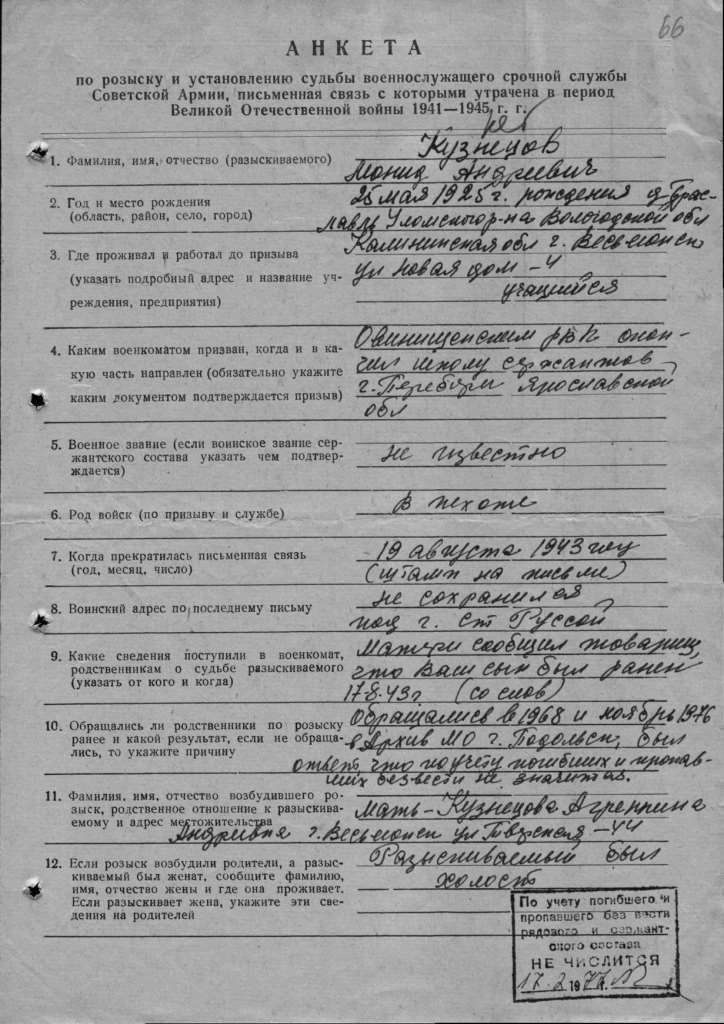 66
АНКЕТА
по розыску и установлению судьбы военнослужащего срочной службы
Советской Армии, письменная связь с которыми утрачена в период
Великой Отечественной войны 1941—1945 г. г.
1. Фамилия, имя, отчество (разыскиваемого)
Кузнецов
Монид Андреевич
2. Год и место рождения
(область, район, село, город)
25 мая 1925 г. рождения
Уломского р-на Вологодской обл
3. Где проживал и работал до призыва
(указать подробный адрес и название уч-
реждения, предприятия)
Калининская обл г. Весьегонск
ул Новая дом-4
учащийся
4. Каким военкоматом призван, когда и в ка-
кую часть направлен (обязательно укажите
каким документом подтверждается призыв)
Овинищенским РВК окон-
чил школу сержантов
г. Переборы Ярославской
обл
5. Военное звание (если воинское звание сер-
жантского состава указать чем подтвер-
ждается)
не известно
6. Род войск (по призыву и службе)
в пехоте
7. Когда прекратилась письменная связь
(год, месяц, число)
19 августа 1943 году
(штамп на письме)
8. Воинский адрес по последнему письму
не сохранился
под г. Ст Руссой
9. Какие сведения поступили в военкомат,
родственникам о судьбе разыскиваемого
(указать от кого и когда)
Матери сообщил товарищ,
что Ваш сын был ранен
17-8-43г (со слов)
10. Обращались ли родственники по розыску
ранее и какой результат, если не обраща-
лись, то укажите причину
Обращались в 1968 и ноябрь 1976
в Архив МО г. Подольск, был
ответ, что по учету погибших и пропав-
ших безвести не значится.
11. Фамилия, имя, отчество возбудившего ро-
зыск, родственное отношение к разыскива-
емому и адрес местожительства
Мать-Кузнецова Агреппина
Андреевна г. Весьегонск ул Тверская-44
12. Если розыск возбудили родители, а разыс-
киваемый был женат, сообщите фамилию,
имя, отчество жены и где она проживает.
Если разыскивает жена, укажите эти све-
дения на родителей
Разыскиваемый был
холост
По учету погибшего и
пропавшего без вести
рядового и сержант-
ского состава
НЕ ЧИСЛИТСЯ
17.2.1977г.